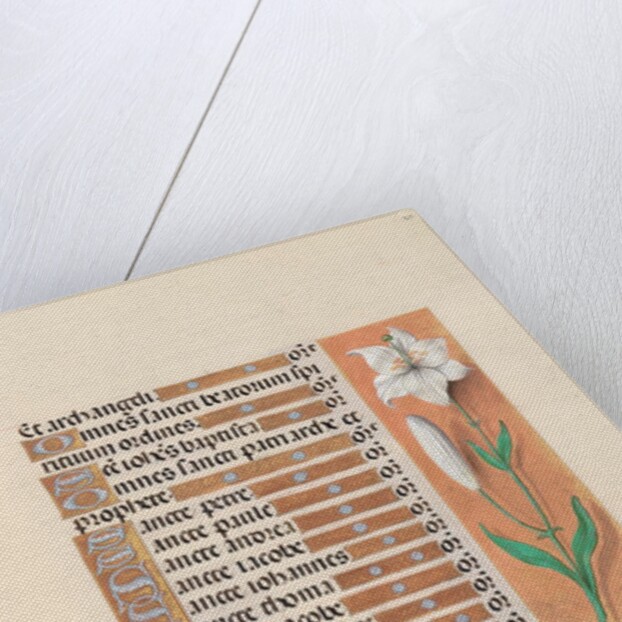 Et archangeli or̄
Omnes sancti beatorum spi
rituum ordines or̄
S Iohes baptista or̄
Omnes sancti patriarche et
prophete or̄
Sancte petre or̄
Sancte paule or̄
Sancte andrea or̄
Sancte iacobe or̄
Sancte iohannes or̄
Sancte thoma or̄